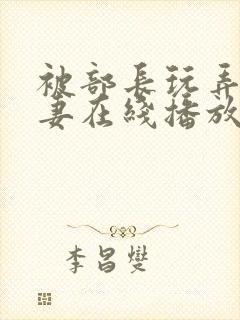 被部长玩弄
妻在线播放
李昌燮